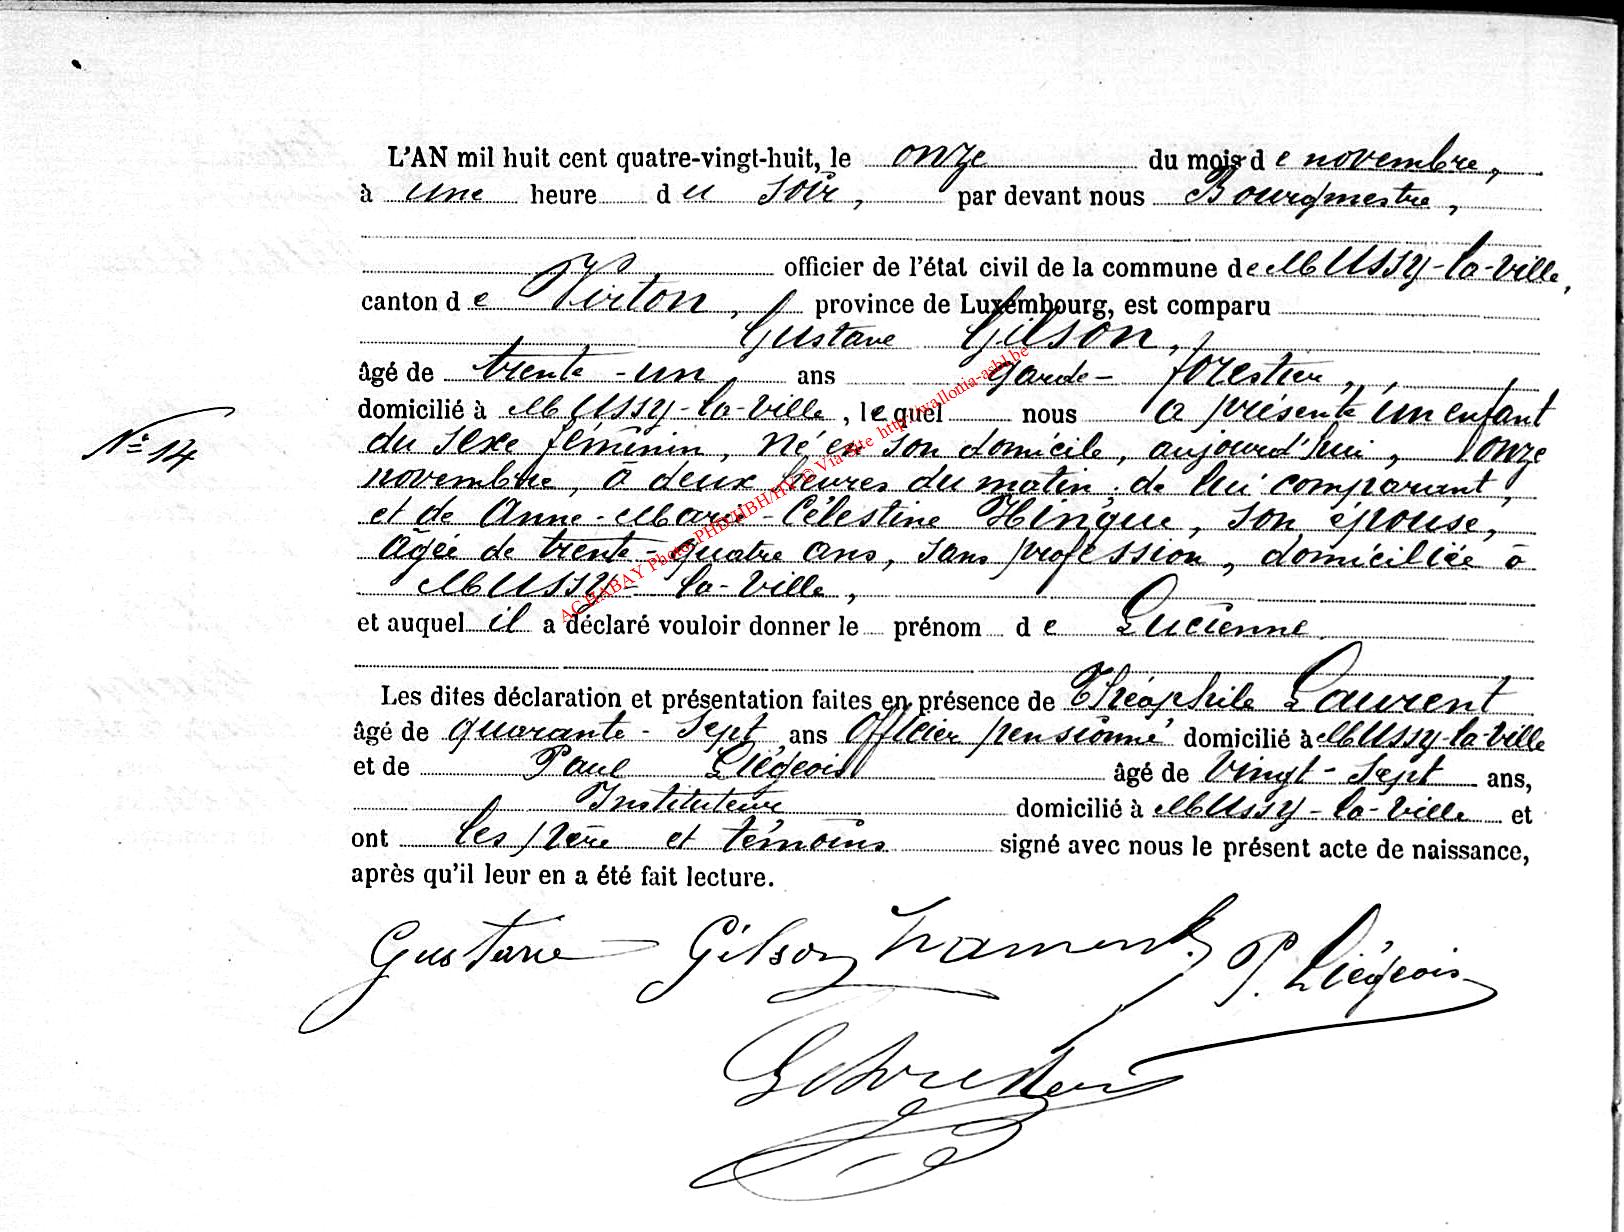 L'AN mil huit cent quatre-vingt-huit, le onze du mois de novembre,
à une heure du soir, par devant nous Bourgmestre,
officier de l'état civil de la commune de Mussy-la-ville,
canton de Virton, province de Luxembourg, est comparu
Gustave Gilson,
âgé de trente-un ans garde-forestier,
domicilié à Mussy-la-ville, lequel nous a présenté un enfant
N° 14
du sexe féminin, né en son domicile, aujourd'hui, onze
novembre, à deux heures du matin, de lui comparant,
et de Anne-Marie-Célestine Hingue, son épouse,
agée de trente-quatre ans, sans profession, domiciliée à
Mussy-la-ville,
et auquel il a déclaré vouloir donner le prénom de Lucienne
Les dites déclaration et présentation faites en présence de Théophile Laurent
âgé de quarante-sept ans officier pensionné domicilié à Mussy-la-ville
et de Paul Liégeois âgé de vingt-sept ans,
Instituteur domicilié à Mussy-la-ville et
ont les père et témoins signé avec nous le présent acte de naissance,
après qu'il leur en a été fait lecture.
Gustave Gilson P. Liégeois
ACHABAY Photo PHD/HBH/HV © Via Site http://wallonia-asbl.be